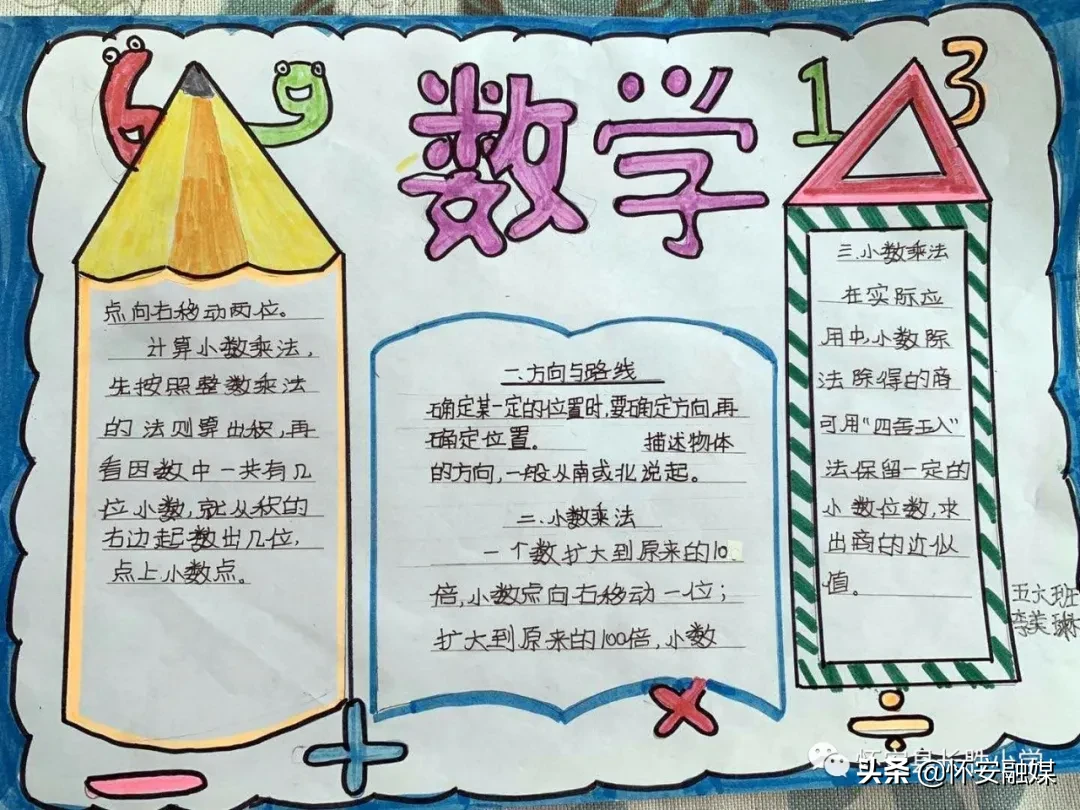 6 9 数学 1 3
一.方向与路线
确定某一定的位置时,要确定方向,再
确定位置。 描述物体
的方向,一般从南或北说起。
二.小数乘法
一个数扩大到原来的10
倍,小数点向右移动一位;
扩大到原来的100倍,小数
点向右移动两位。
计算小数乘法,
先按照整数乘法
的法则算出积,再
看因数中一共有几
位小数,就从积的
右边起数出几位,
点上小数点。
三.小数乘法
在实际应
用中,小数除
法除得的商
可用“四舍五入”
法保留一定的
小数位数,求
出商的近似
值。
李美琳
+
×
÷
−
怀安县长胜小学
头条 @怀安融媒